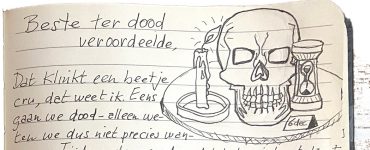 Beste ter dood
veroordeelde,
Dat klinkt een beetje
cru, dat weet ik. Eens
gaan we dood - alleen we-
ten we dus niet precies wan-